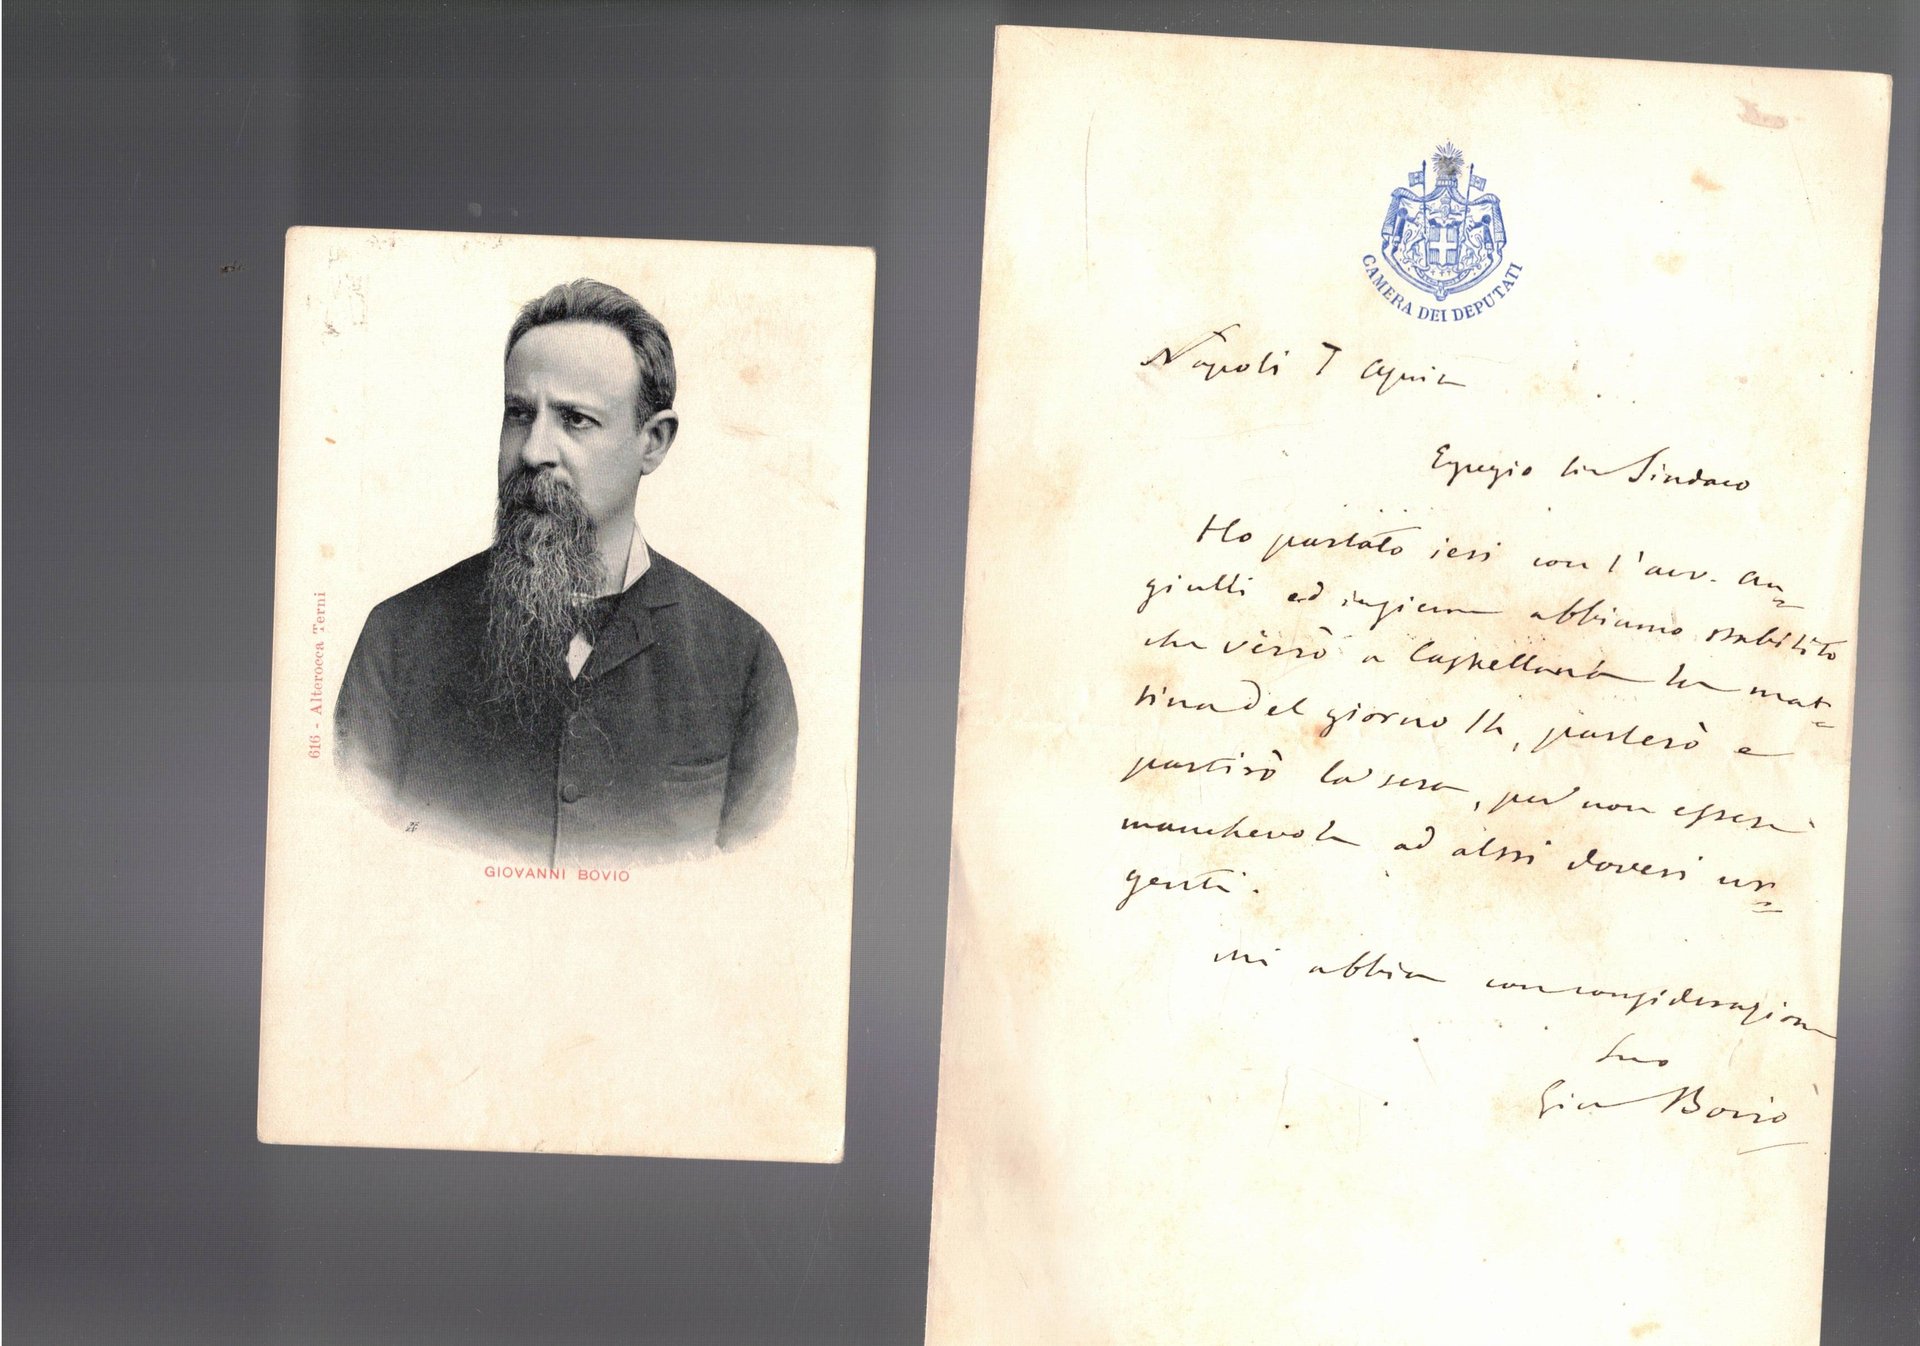 616 - Alterocca Terni
GIOVANNI BOVIO
CAMERA DEI DEPUTATI
Napoli 7
Egregio Sindaco
Ho parlato ieri con l'avv. An-
giulli ed insieme abbiamo stabilito
che verrò a Castellana la mat-
tina del giorno, parlerò e
partirò la sera, per non essere
manchevole ad altri doveri ur-
genti.
Mi abbia con considerazione
Suo
Gio Bovio